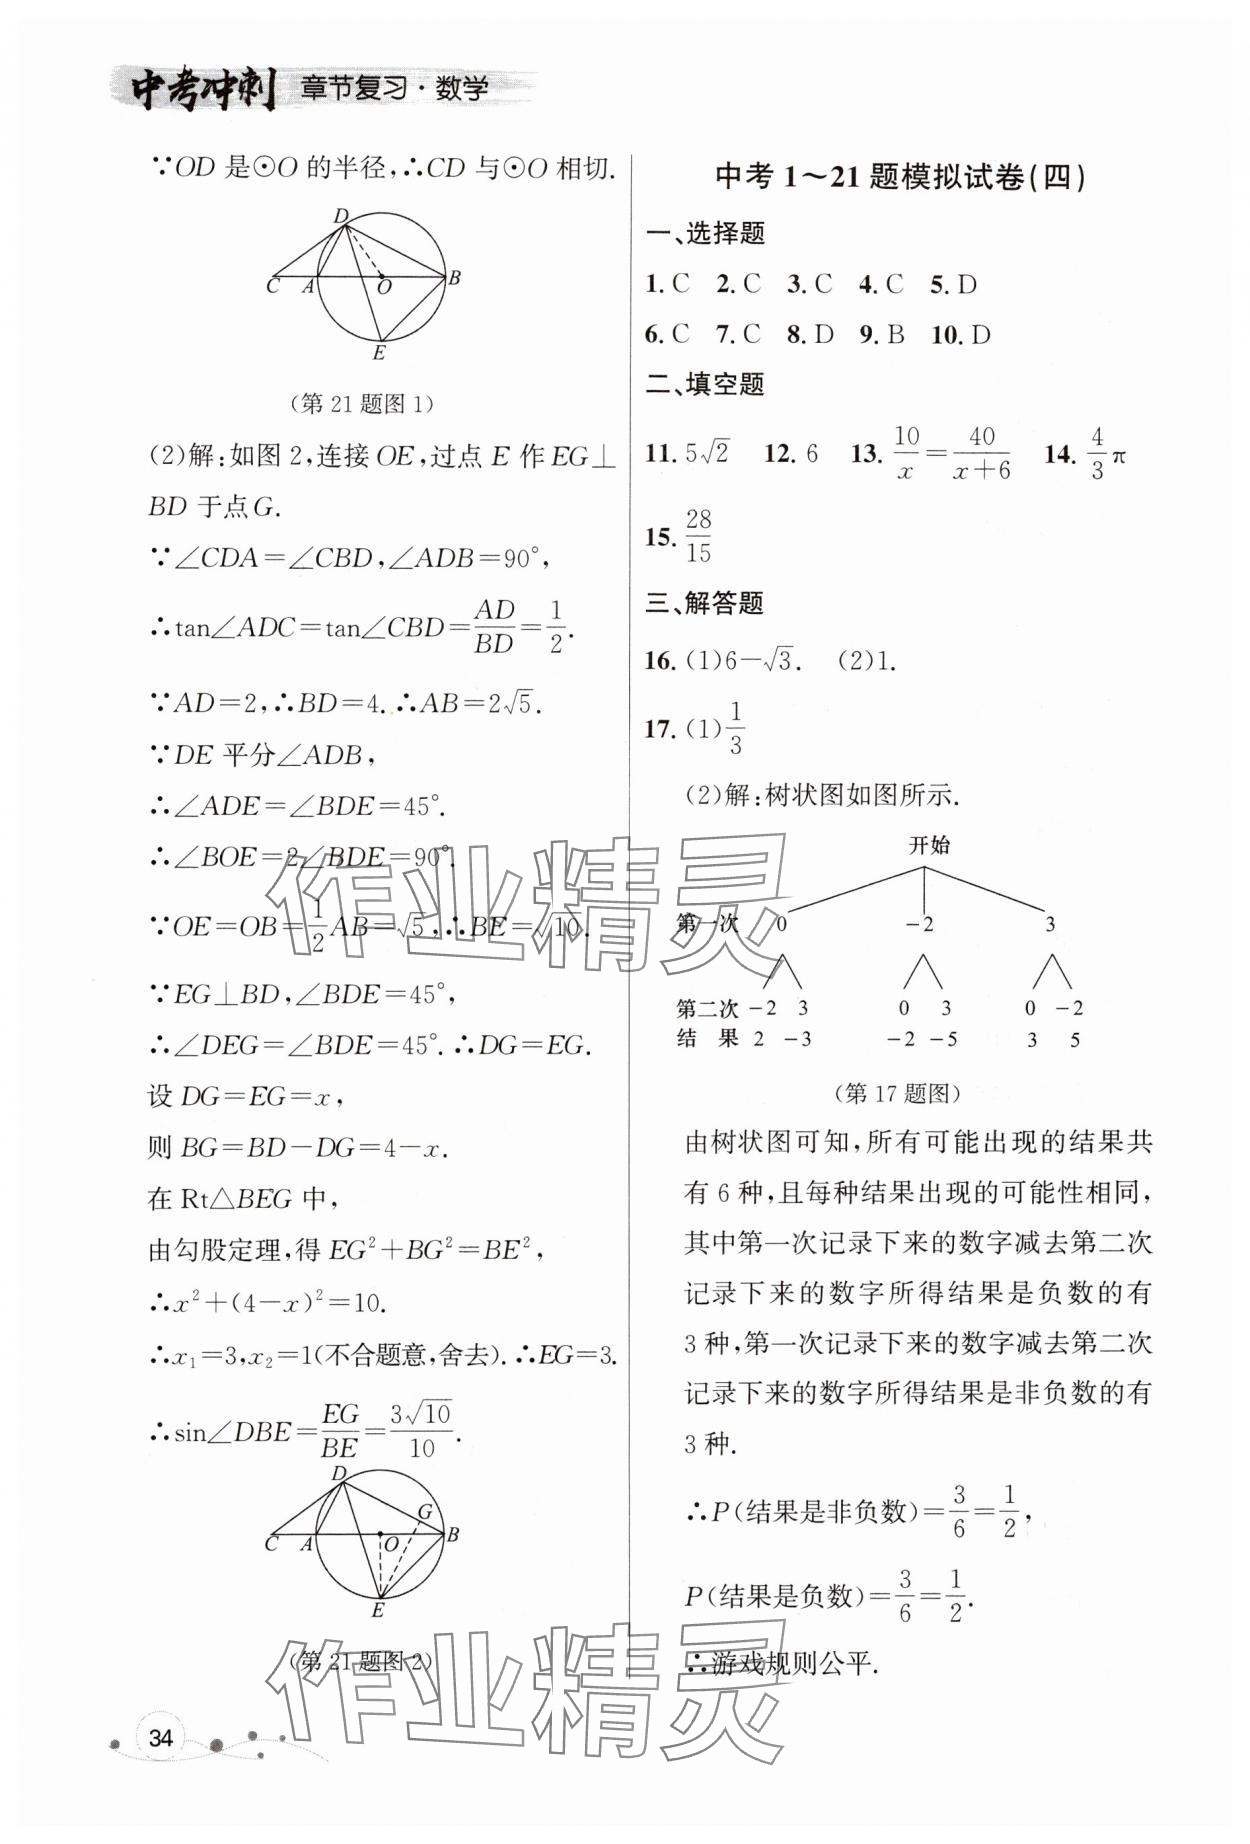 中考冲刺 章节复习·数学
∵OD 是⊙O 的半径,∴CD 与⊙O 相切.
D
C A O B
E
(第 21 题图 1)
(2)解:如图 2,连接 OE,过点 E 作 EG⊥
BD 于点G.
∵∠CDA=∠CBD,∠ADB=90°,
∴tan∠ADC=tan∠CBD=AD/BD=1/2.
∵AD=2,∴BD=4.∴AB=2√5.
∵DE 平分∠ADB,
∴∠ADE=∠BDE=45°.
∴∠BOE=2∠BDE=90°.
∵OE=OB=1/2AB=√5,∴BE=√10.
∵EG⊥BD,∠BDE=45°,
∴∠DEG=∠BDE=45°.∴DG=EG.
设 DG=EG=x,
则 BG=BD−DG=4−x.
在 Rt△BEG 中,
由勾股定理,得 EG²+BG²=BE²,
∴x²+(4−x)²=10.
∴x₁=3,x₂=1(不合题意,舍去).∴EG=3.
∴sin∠DBE=EG/BE=3√10/10.
D
G
C A O B
E
(第 21 题图 2)
34
中考 1～21 题模拟试卷(四)
一、选择题
1. C 2. C 3. C 4. C 5. D
6. C 7. C 8. D 9. B 10. D
二、填空题
11. 5√2 12. 6 13. 10/x=40/(x+6) 14. 4/3π
15. 28/15
三、解答题
16. (1)6−√3. (2)1.
17. (1)1/3
(2)解:树状图如图所示.
开始
第一次 0 −2 3
第二次 −2 3 0 3 0 −2
结 果 2 −3 −2 −5 3 5
(第 17 题图)
由树状图可知,所有可能出现的结果共
有 6 种,且每种结果出现的可能性相同,
其中第一次记录下来的数字减去第二次
记录下来的数字所得结果是负数的有
3 种,第一次记录下来的数字减去第二次
记录下来的数字所得结果是非负数的有
3 种.
∴P(结果是非负数)=3/6=1/2,
P(结果是负数)=3/6=1/2.
∴游戏规则公平.
作业精灵
作业精灵